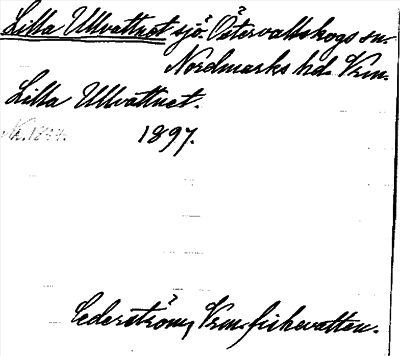 Lilla Ullvattnet sjö. Östervallskogs sn.
Nordmarks hd. Vrm.
Lilla Ullvattnet.
1897.
Cederström, Vrm. fiskevatten.